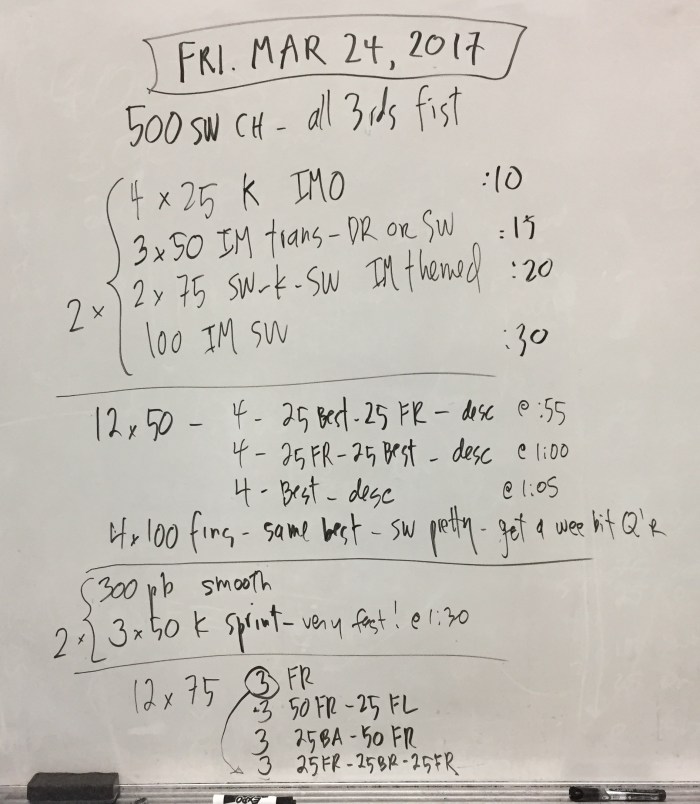 FRI. MAR 24, 2017
500 SW CH - all 3rds fist
4 x 25 K IMO :10
3 x 50 IM trans - DR or SW :15
2 x 75 SW-K-SW IM themed :20
2 x
100 IM SW :30
12 x 50 - 4 - 25 Best - 25 FR - desc @ :55
4 - 25 FR - 25 Best - desc @ 1:00
4 - Best - desc @ 1:05
4 x 100 fins - same best - SW pretty - get a wee bit Q'R
300 pb smooth
2 x 3 x 50 K sprint - very fast! @ 1:30
12 x 75 3 FR
3 50 FR - 25 FL
3 25 BA - 50 FR
3 25 FR - 25 BR - 25 FR
EXPO